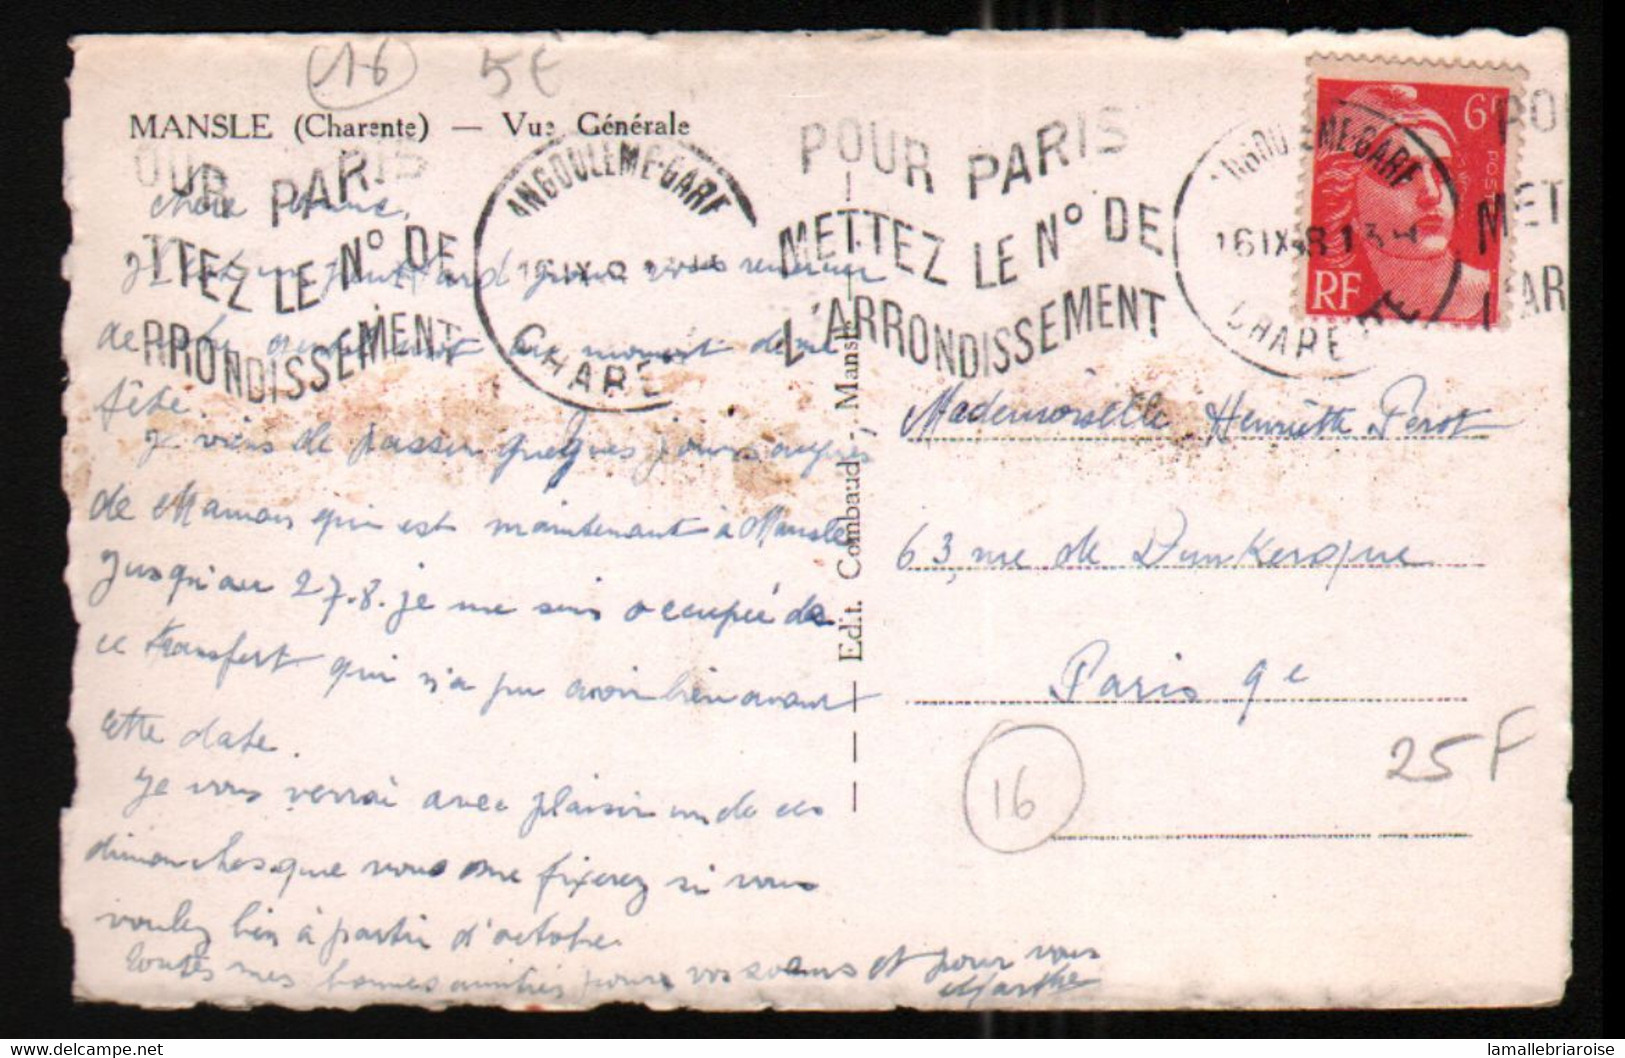 (16) 5€
MANSLE (Charente) — Vue Générale
OUR PARIS
TTEZ LE N° DE
RRONDISSEMENT
ANGOULEME-GARE
CHARE
POUR PARIS
METTEZ LE N° DE
L'ARRONDISSEMENT
ANGOULEME-GARE
16 IX 48 13 H
CHARENTE
6F
POSTES
RF
PO
MET
L'AR
Chère
tard pour vous remercier
de votre au moment de ma
fête.
Je viens de passer quelques jours auprès
de Maman qui est maintenant à Mansle
Jusqu'au 27.8. je me suis occupée de
ce transfert qui n'a pu avoir lieu avant
cette date.
Je vous verrai avec plaisir un de ces
dimanches que vous me fixerez si vous
voulez bien à partir d'octobre.
Toutes mes bonnes amitiés pour vos soeurs et pour vous
Marthe
— Edit. Combaud - Mansle
Mademoiselle Henriette Perot
63, rue de Dunkerque
Paris 9e
16
25F
lamallebriaroise